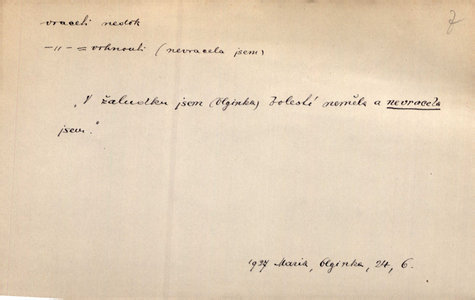 7
vraceti nedok
—„— = vrhnouti (nevracela jsem)
„V žaludku jsem (Olginka) bolestí neměla a nevracela
jsem."
1937 Maria, Olginka, 24, 6.